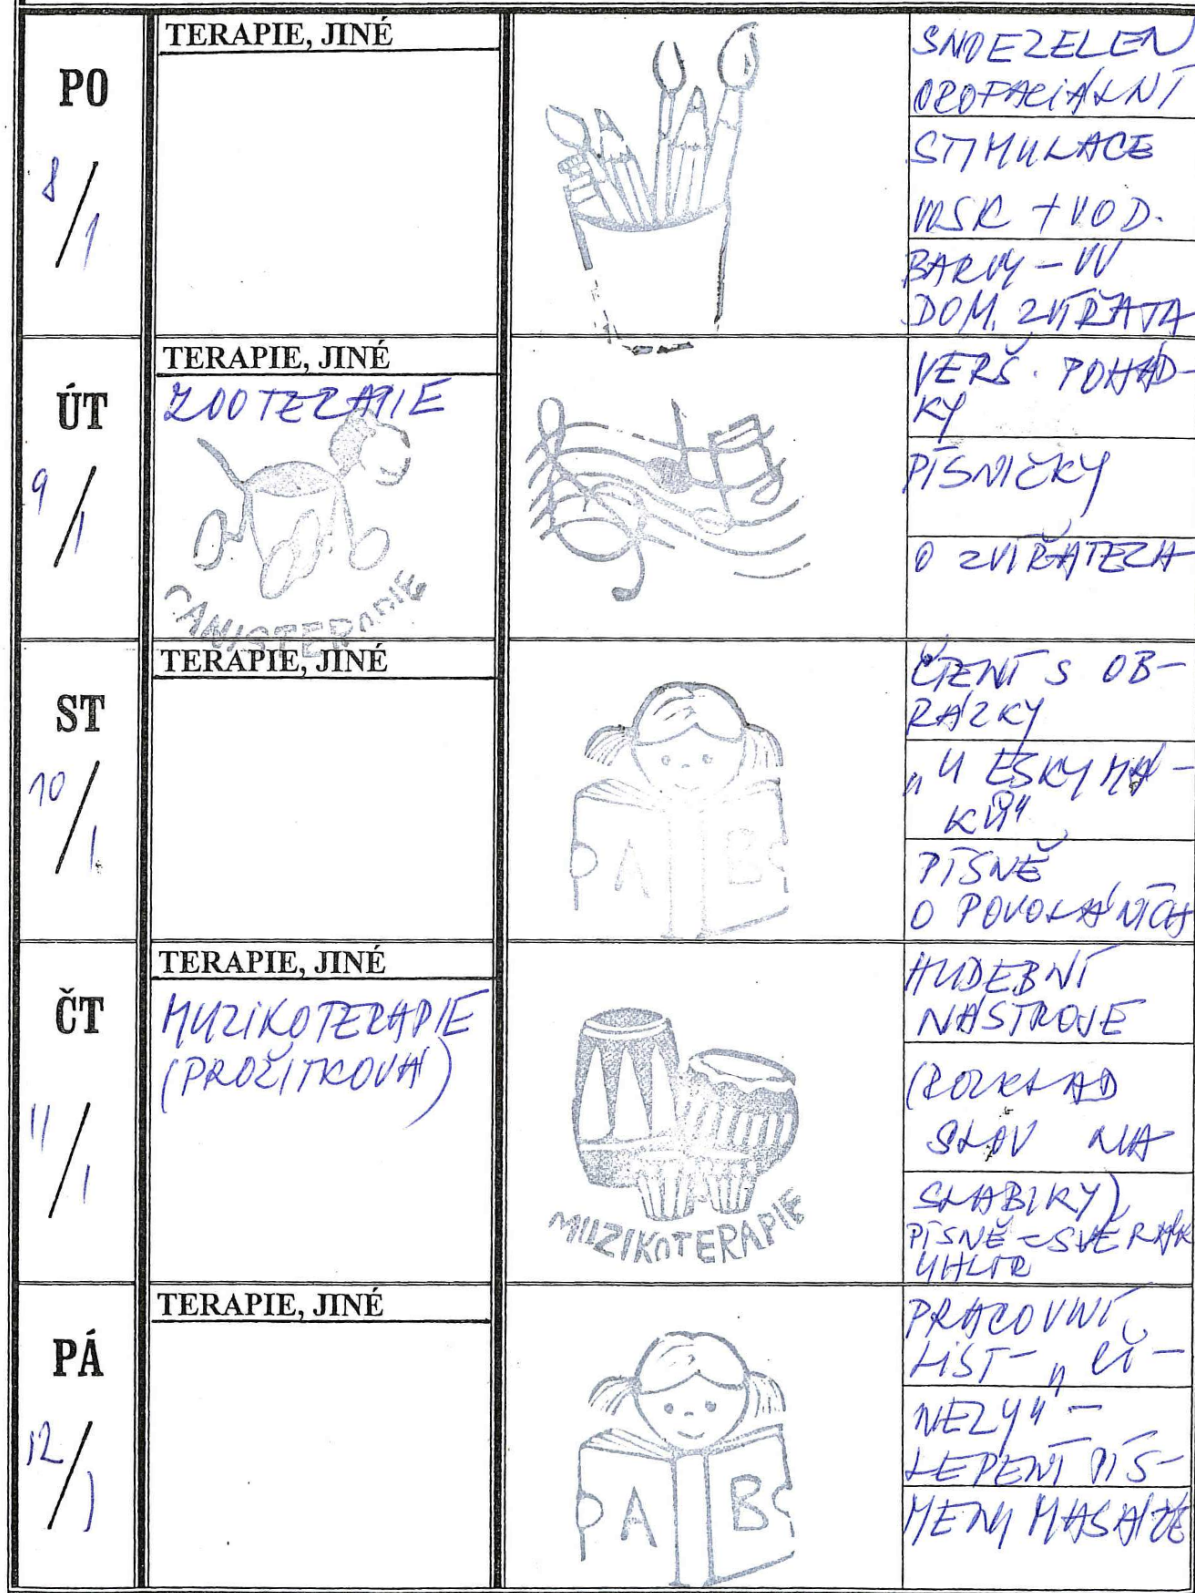 PO
8/1
TERAPIE, JINÉ
SNOEZELEN
OROFACIÁLNÍ
STIMULACE
VOSK + VOD.
BARVY - VV
DOM. ZVÍŘATA
ÚT
9/1
TERAPIE, JINÉ
ZOOTERAPIE
CANISTERAPIE
VERŠ. POHÁD-
KY
PÍSNIČKY
O ZVÍŘATECH
ST
10/1
TERAPIE, JINÉ
A B
ČTENÍ S OB-
RÁZKY
„U ESKYMÁ-
KŮ"
PÍSNĚ
O POVOLÁNÍCH
ČT
11/1
TERAPIE, JINÉ
MUZIKOTERAPIE
(PROŽITKOVÁ)
MUZIKOTERAPIE
HUDEBNÍ
NÁSTROJE
(ROZKLAD
SLOV NA
SLABIKY)
PÍSNĚ - SVĚRÁK
UHLÍŘ
PÁ
12/1
TERAPIE, JINÉ
A B
PRACOVNÍ
LIST - „
LEPENÍ PÍS-
MEN MASÁŽE